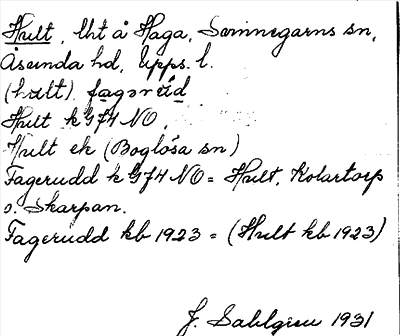 Hult, lht å Haga, Svinnegarns sn,
Åsunda hd, Upps. l.
(hult) fagəreid
Hult k G74 NO,
Hult ek (Boglösa sn)
Fagerudd k G74 NO = Hult, Kolartorp
o. Skarpan.
Fagerudd kb 1923 = (Hult kb 1923)
J. Sahlgren 1931